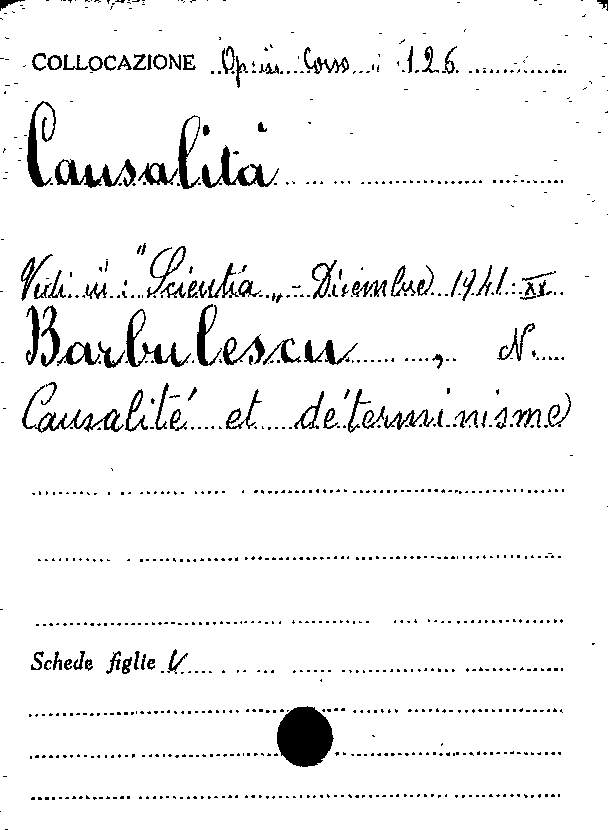 COLLOCAZIONE Op. in Corso 126
Causalità
Vedi in: "Scientia„ - Dicembre 1941-XX
Barbulescu, N.
Causalité et déterminisme
Schede figlie V